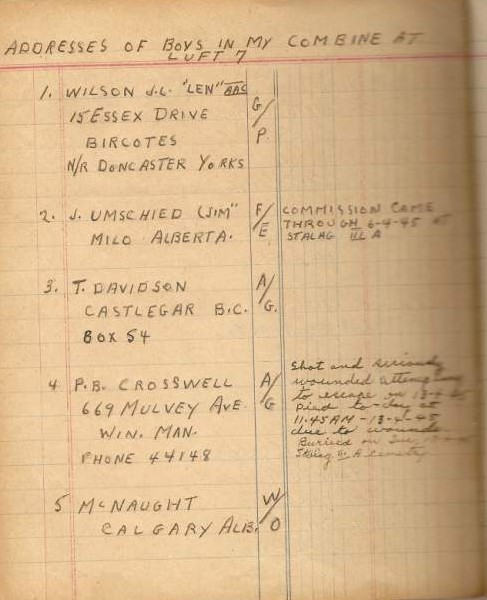 ADDRESSES OF BOYS IN MY COMBINE AT
LUFT 7
1. WILSON J.L. "LEN"
15 ESSEX DRIVE
BIRCOTES
N/R DONCASTER YORKS
G/P.
2. J. UMSCHIED (JIM"
MILO ALBERTA.
F/E
COMMISSION CAME
THROUGH 6-4-45 AT
STALAG III A
3. T. DAVIDSON
CASTLEGAR B.C.
BOX 54
A/G.
4 P.B. CROSSWELL
669 MULVEY AVE.
WIN. MAN.
PHONE 44148
A/G
Shot and seriously
wounded attempting
to escape on 13-4-45
to-day at
11.45 AM - 13-4-45
due to wounds
Buried on
Stalag III A cemetry
5 McNAUGHT
CALGARY ALB.
W/O